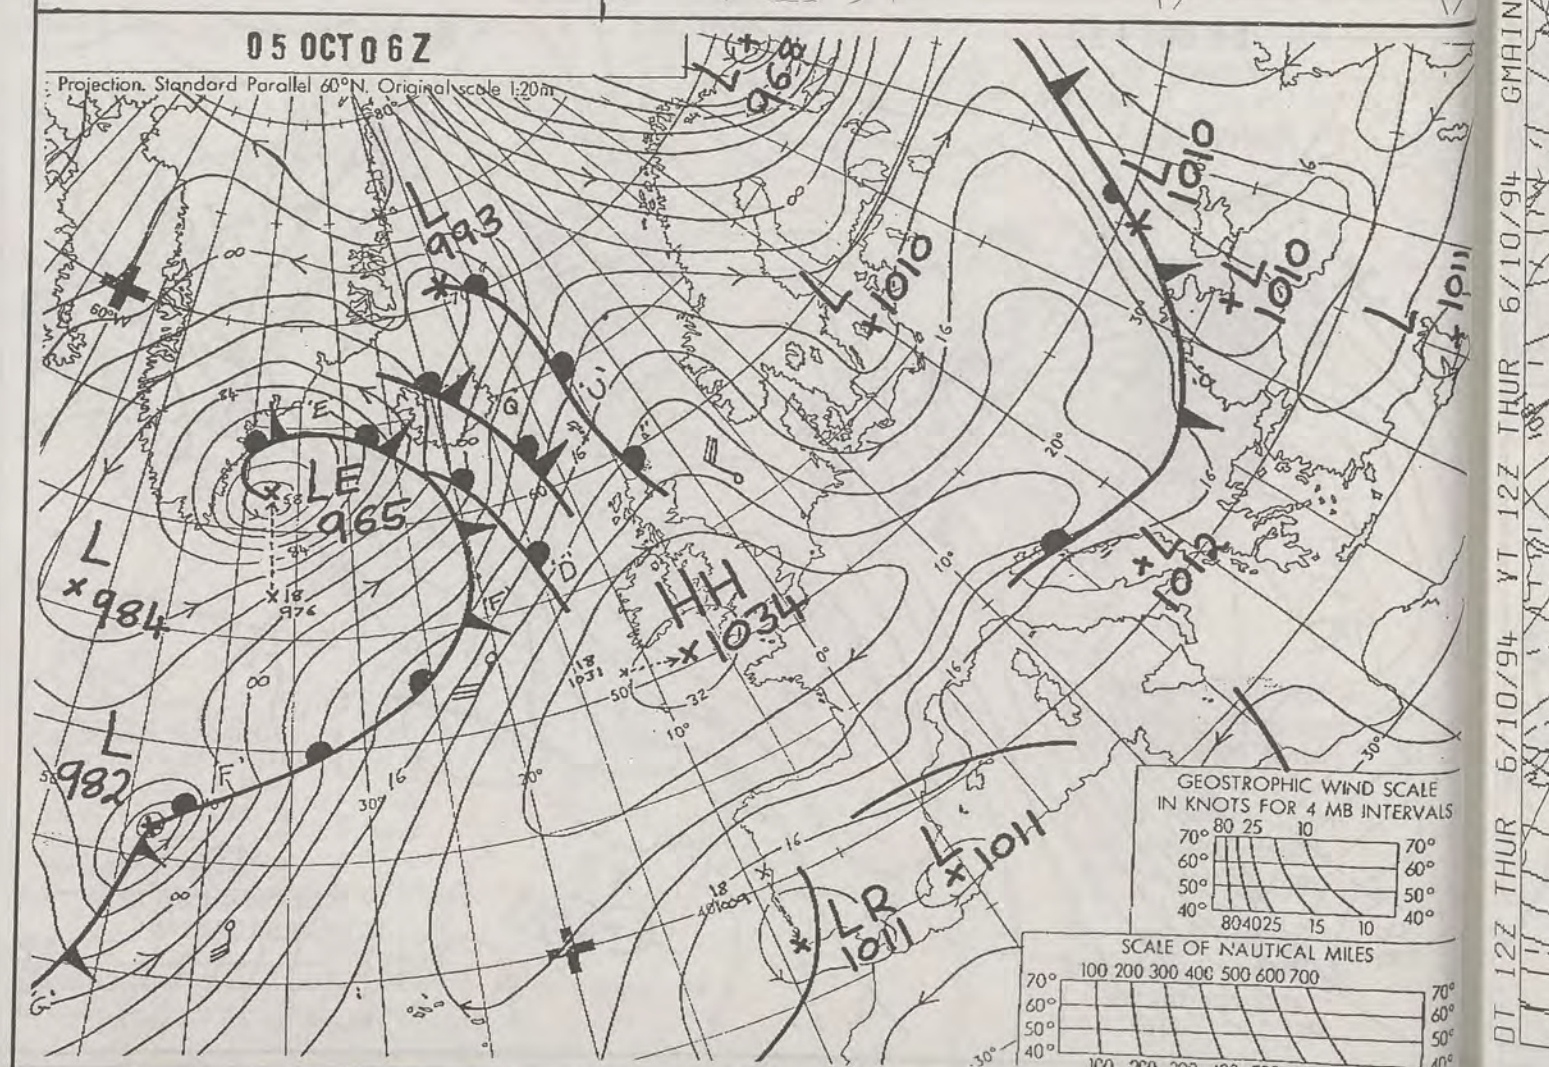 05 OCT 06Z
Projection. Standard Parallel 60°N. Original scale 1:20m
80°
L
968
L
993
L
1010
L
1010
L
1010
L
1011
16
16
60°
'E'
Q
'U'
LE
965
58
16
60
20°
16
30
L
984
18
976
'D'
'F'
HH
1034
18
1031
50°
32
10°
0°
10°
L
1012
16
L
982
'F'
30°
16
20°
16
30°
L
1011
18
1009
LR
1011
'G'
30°
GEOSTROPHIC WIND SCALE
IN KNOTS FOR 4 MB INTERVALS
80 25 10
70° 70°
60° 60°
50° 50°
40° 40°
80 40 25 15 10
SCALE OF NAUTICAL MILES
100 200 300 400 500 600 700
70° 70°
60° 60°
50° 50°
40° 40°
DT 12Z THUR 6/10/94 YT 12Z THUR 6/10/94 GMAIN